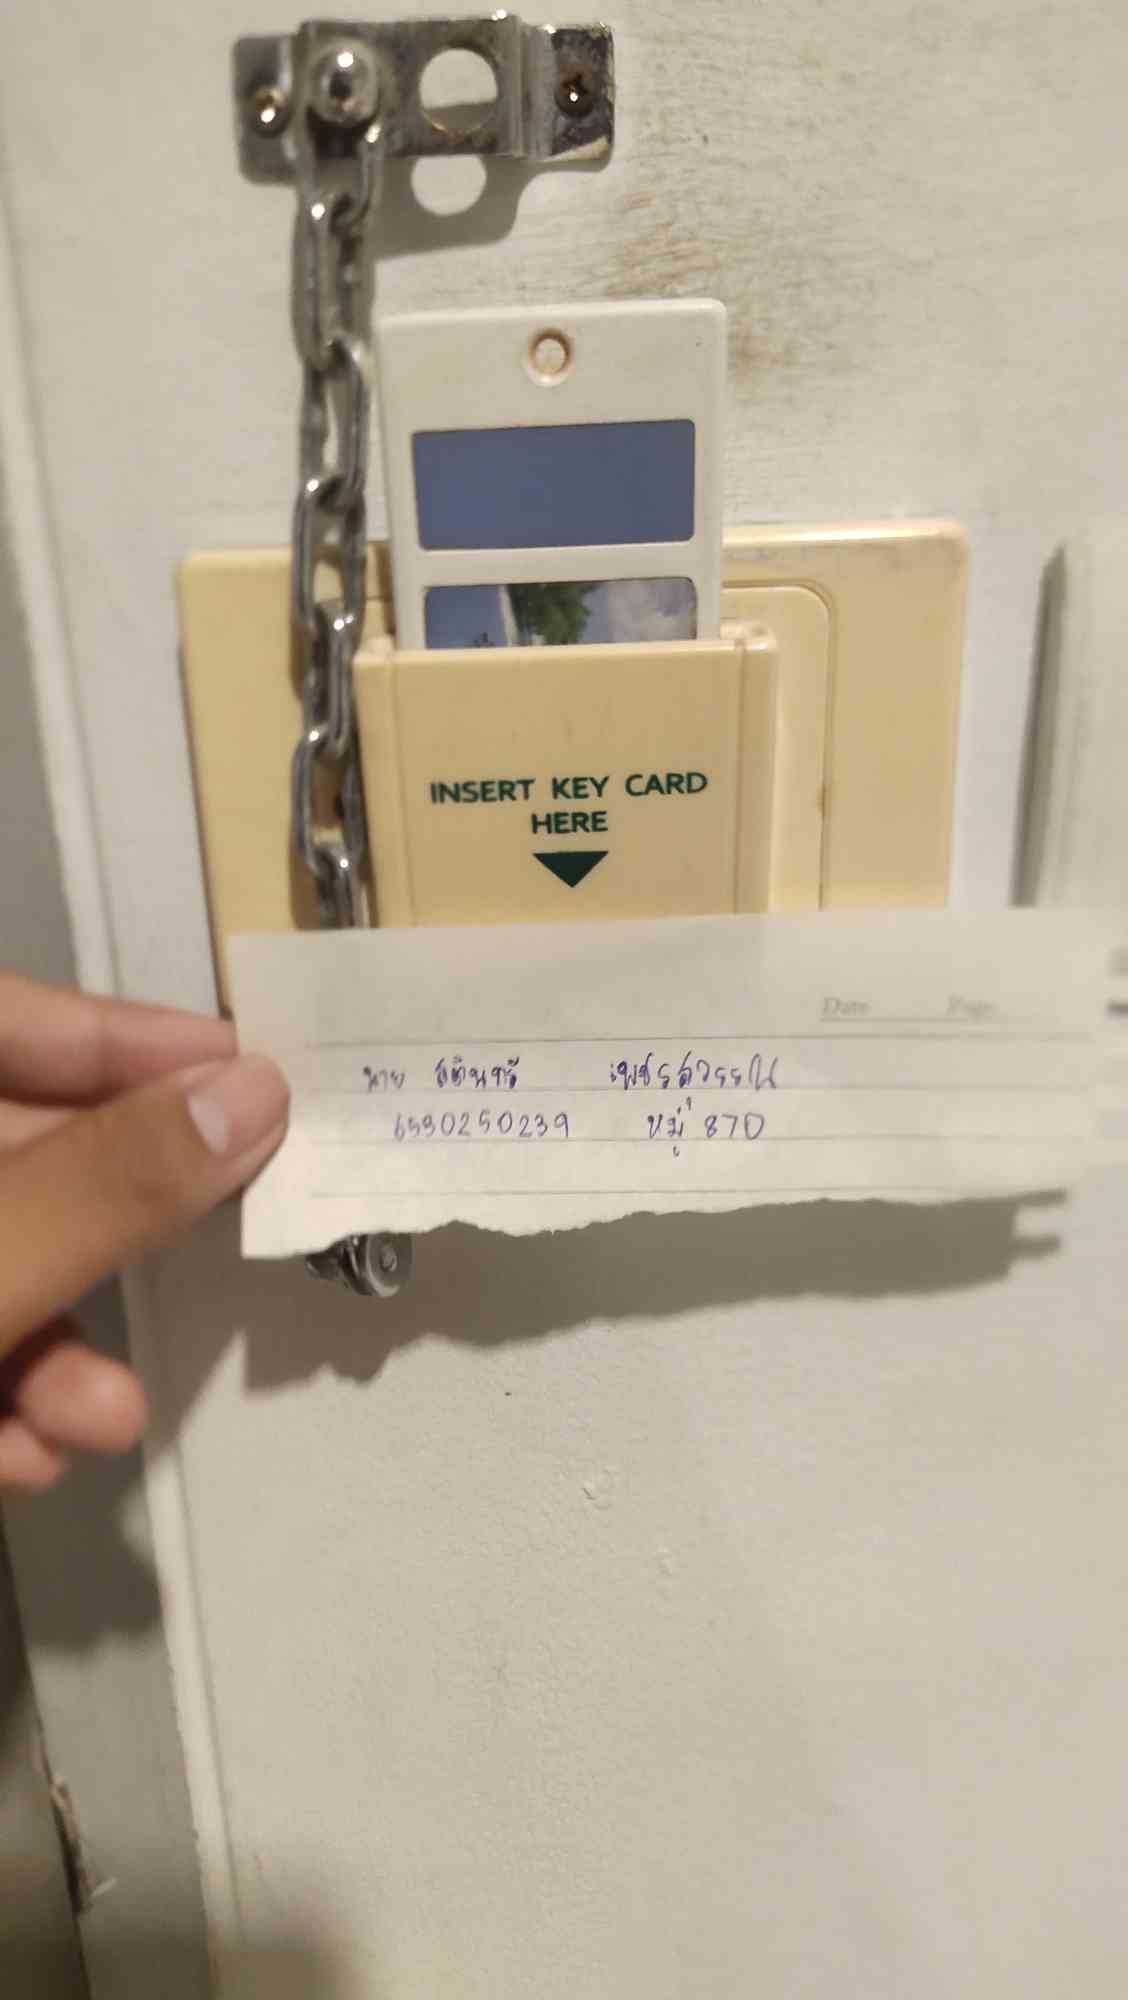 INSERT KEY CARD
HERE
Date Page
นาย สตินทรี เพชรสุวรรณ
6530250239 หมู่ 870